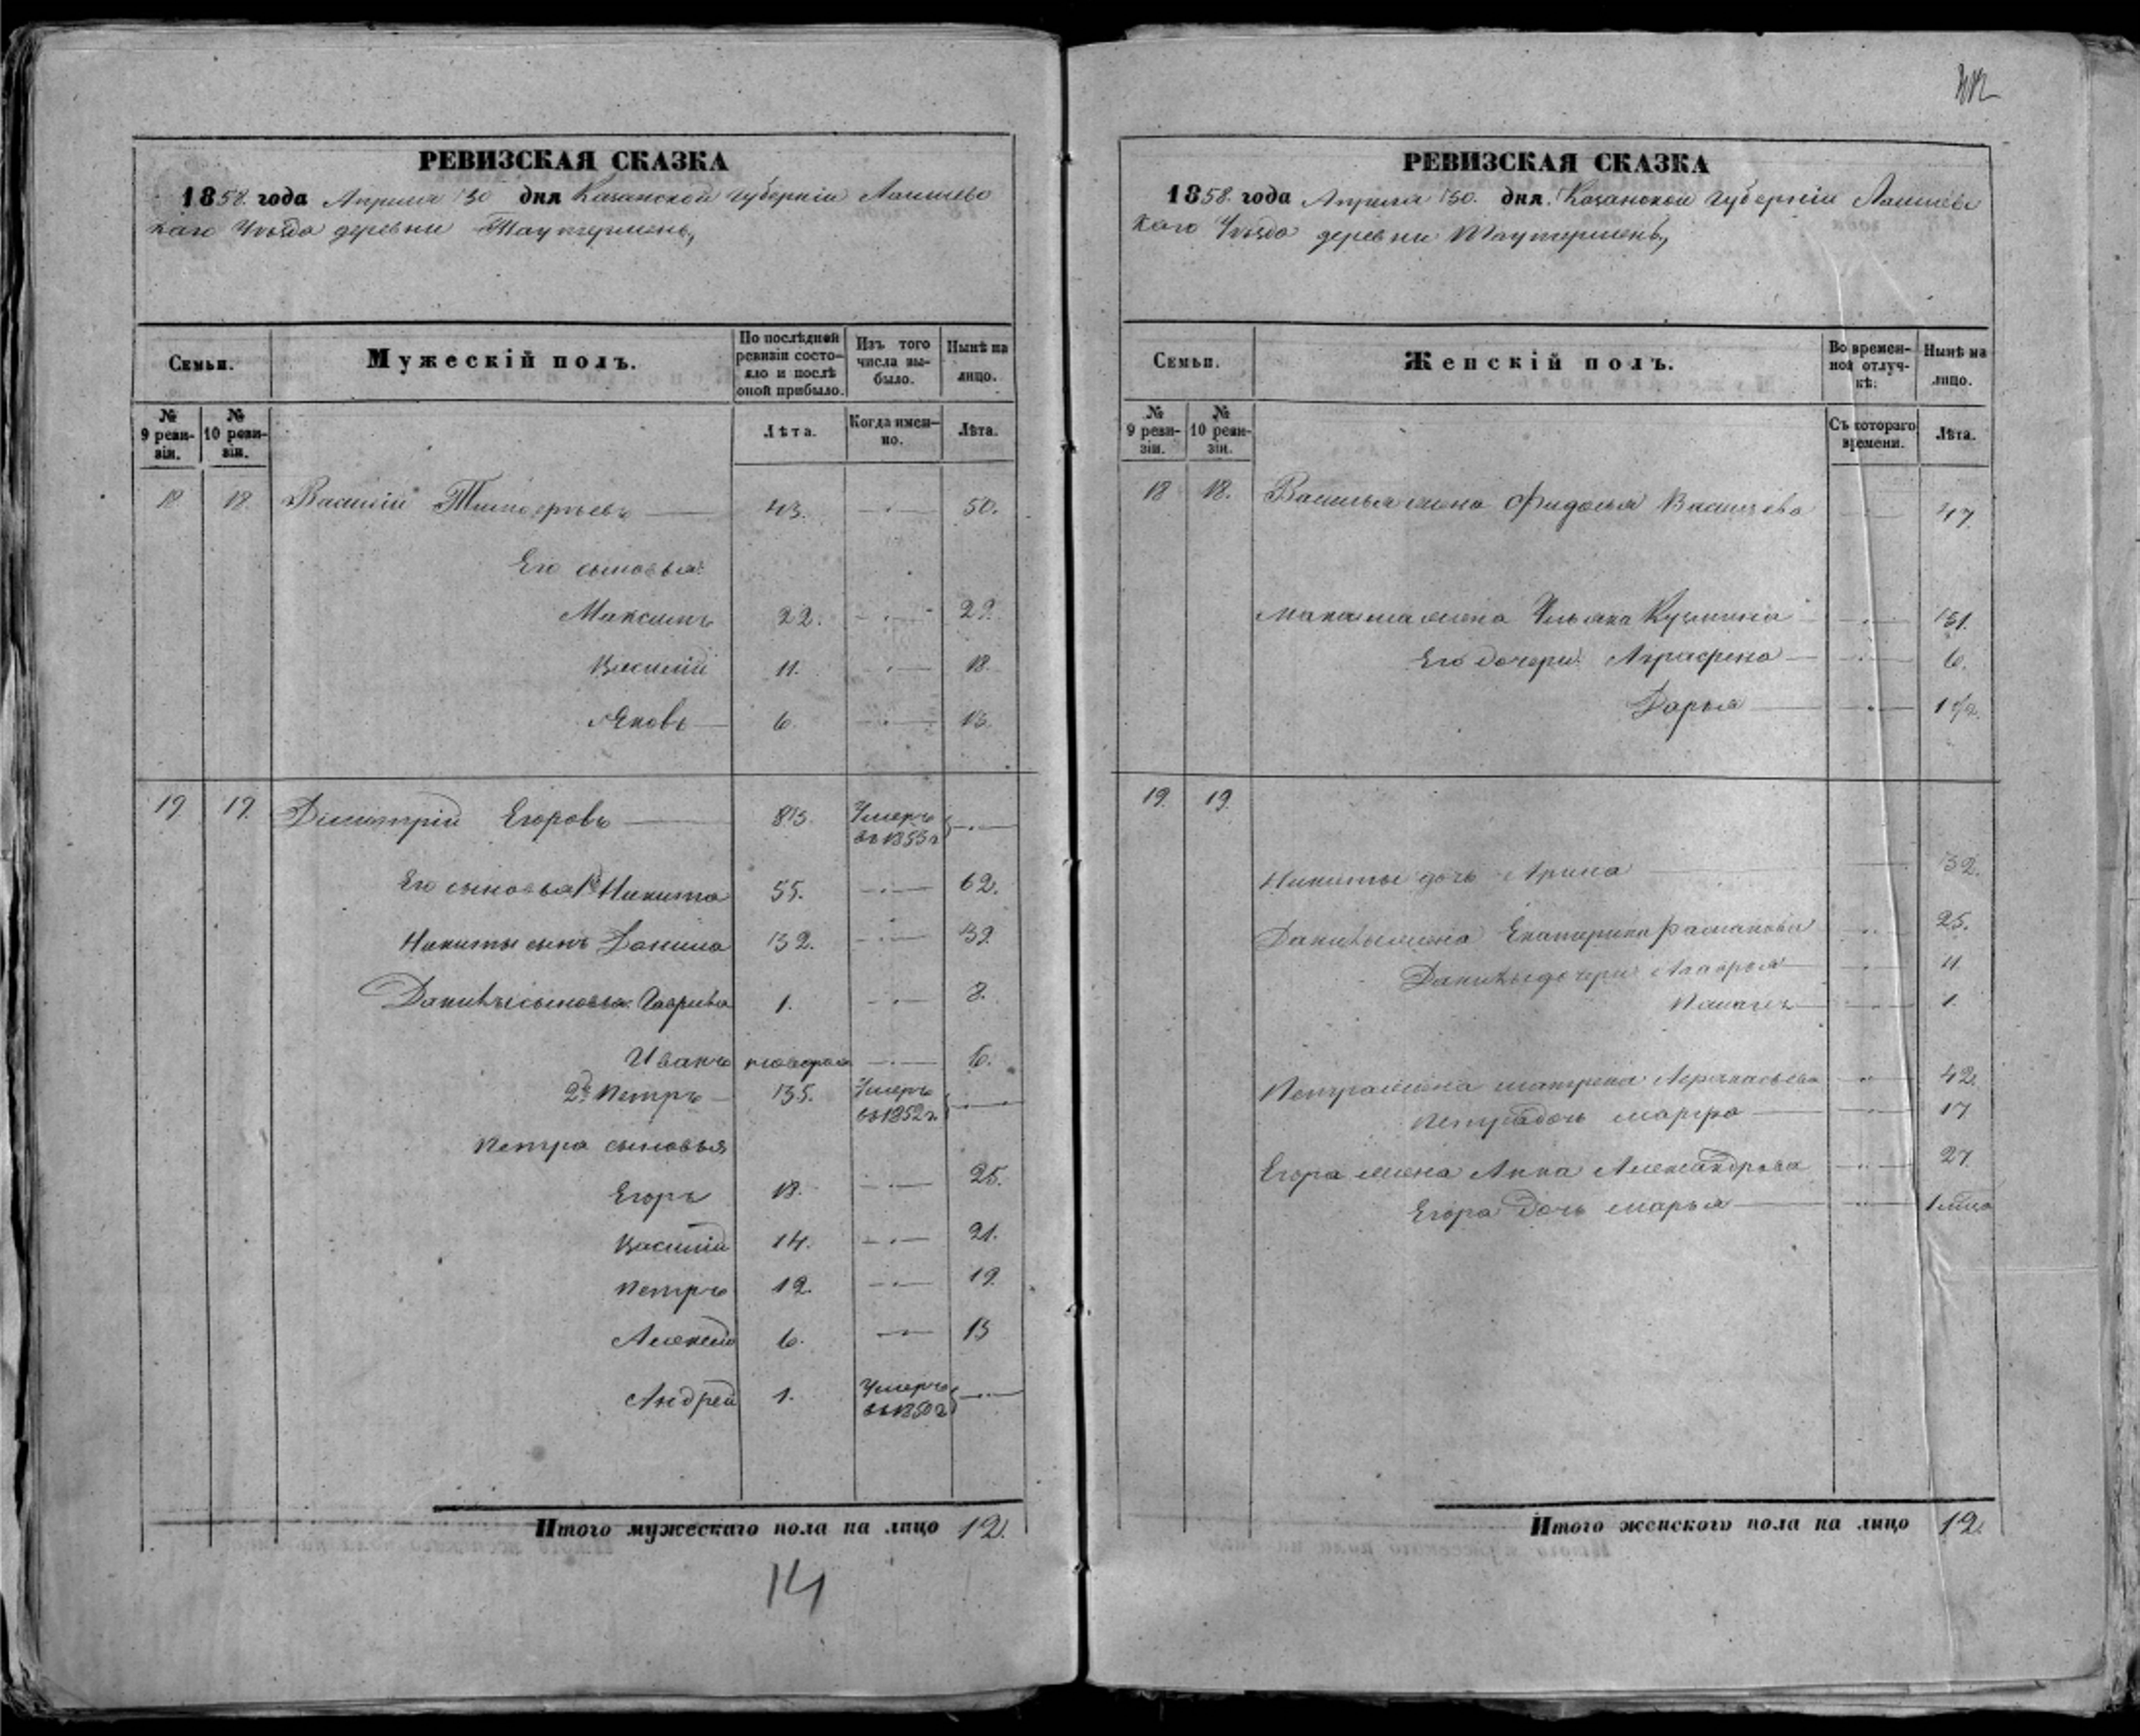 РЕВИЗСКАЯ СКАЗКА
1858. года Апреля 30 дня Казанской Губерніи Лаишевс
каго Уѣзда деревни Таутермень,
Семьи.
Мужескій полъ.
По послѣдней ревизіи состояло и послѣ оной прибыло.
Изъ того числа выбыло.
Нынѣ на лицо.
№ 9 ревизіи.
№ 10 ревизіи.
Лѣта.
Когда именно.
Лѣта.
18 18. Василій 43. 50.
Его сыновья:
Максимъ 22. 29.
Василій 11. 18.
Яковъ 6. 13.
19 19. Димитрій Егоровъ 83. Умеръ въ 1853 г
Его сыновья 1й Никита 55. 62.
Никиты сынъ Данила 32. 39
Данилы сыновья: Гаврила 1. 8.
Иванъ 6.
2й Петръ 35. Умеръ въ 1852 г.
Петра сыновья
Егоръ 18. 25.
Василій 14. 21.
Петръ 12. 19.
Алексей 6. 13
Андрей 1. Умеръ въ 1850 г
Итого мужескаго пола на лицо 12.
14
РЕВИЗСКАЯ СКАЗКА
1858. года Апреля 30. дня. Казанской Губерніи Лаишевс
каго Уѣзда деревни Таутермень,
Семьи.
Женскій полъ.
Во временной отлучкѣ.
Нынѣ на лицо.
№ 9 ревизіи.
№ 10 ревизіи.
Съ котораго времени.
Лѣта.
18 18. Василья жена Фидосья Васильева 47.
Максима жена Ульяна Кузмина 31.
Его дочери: Аграфена 6.
Дарья 1 1/2.
19. 19.
Никиты дочь Арина 32.
Данилы жена Екатерина 25.
Данилы дочери 11
1.
Петра жена Матрена Афанасьева 42.
Петра дочь Марфа 17
Егора жена Анна Александрова 27.
Егора дочь Марья
Итого женского пола на лицо 12.